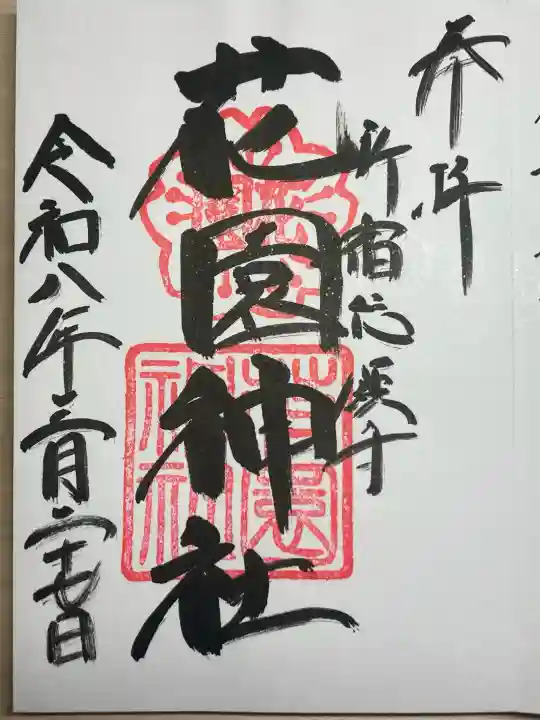 奉拝
新宿総鎮守
花園神社
令和八年二月二十七日
花園神社